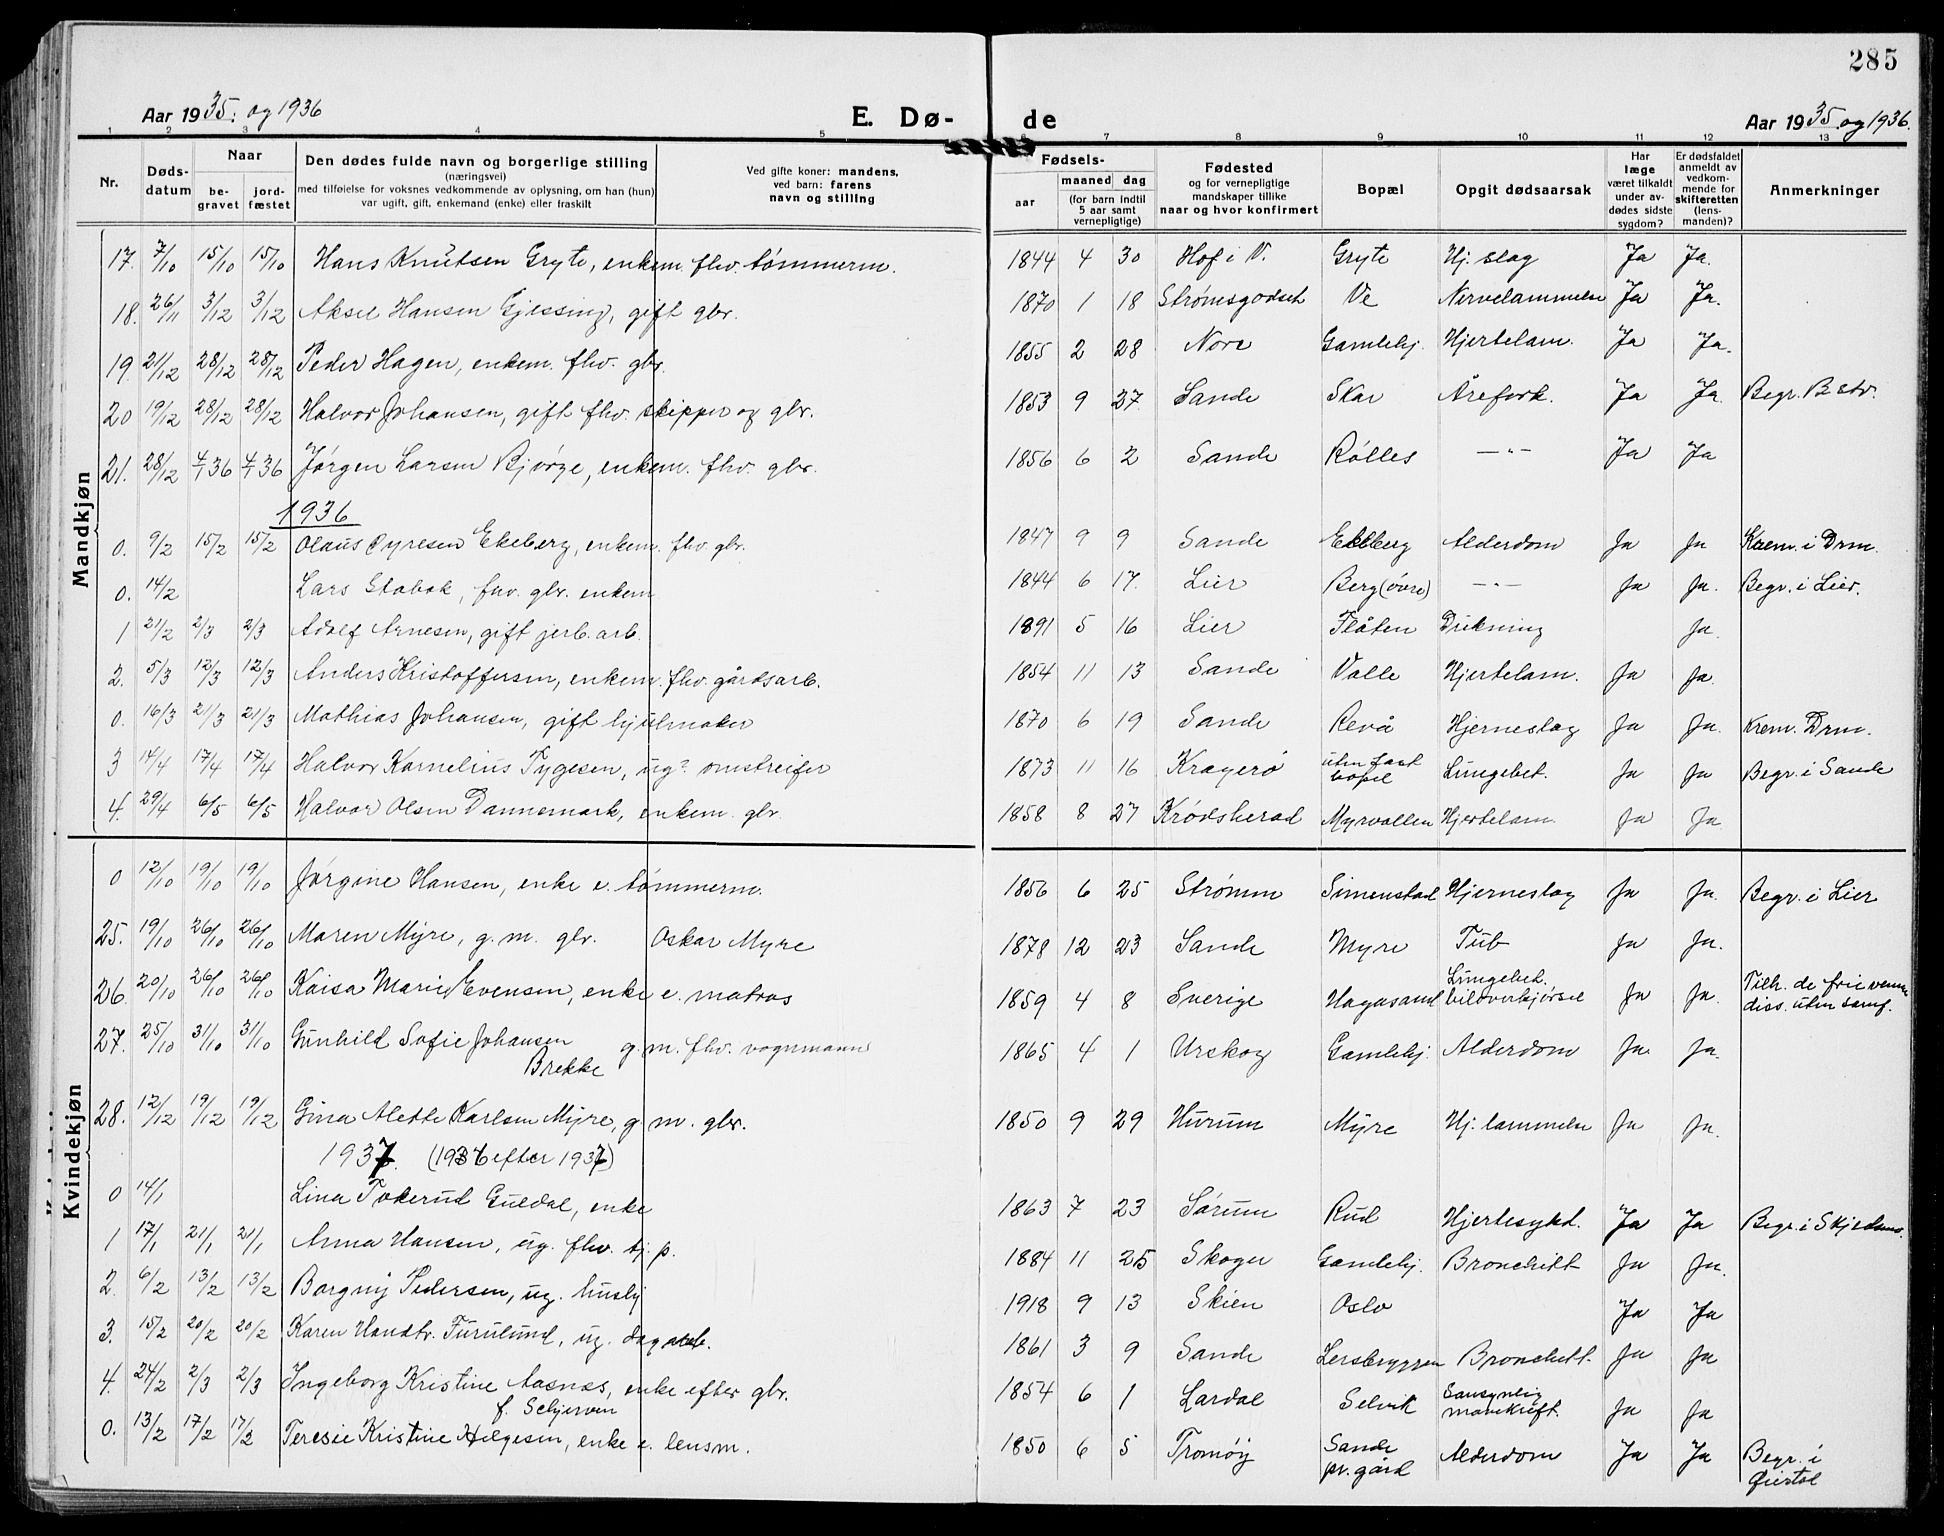 285
Aar 1935. og 1936
E. Dø-
de
Aar 1935. og 1936.
1 2 3 4 5 6 7 8 9 10 11 12 13
Nr.
Døds-
datum
Naar
be-
gravet
jord-
fæstet
Den dødes fulde navn og borgerlige stilling
(næringsvei)
med tilføielse for voksnes vedkommende av oplysning, om han (hun)
var ugift, gift, enkemand (enke) eller fraskilt
Ved gifte koner: mandens,
ved barn: farens
navn og stilling
Fødsels-
aar
maaned
dag
(for barn indtil
5 aar samt
vernepligtige)
Fødested
og for vernepligtige
mandskaper tillike
naar og hvor konfirmert
Bopæl
Opgit dødsaarsak
Har
læge
været tilkaldt
under av-
dødes sidste
sygdom?
Er dødsfaldet
anmeldt av
vedkom-
mende for
skifteretten
(lens-
manden)?
Anmerkninger
Mandkjøn
17. 7/10 15/10 15/10 Hans Knutsen Gryte, enkem. fhv. tømmerm. 1844 4 30 Hof i V. Gryte Hj. slag Ja Ja.
18. 26/11 3/12 3/12 Aksel Hansen Gjessing, gift gbr. 1870 1 18 Strømsgodset Ve Nervelammelse Ja Ja.
19. 21/12 28/12 28/12 Peder Hagen, enkem. fhv. gbr. 1855 2 28 Nore Gamlehj. Hjertelam. Ja Ja.
20 19/12 28/12 28/12 Halvor Johansen, gift fhv. skipper og gbr. 1853 9 27 Sande Skar Årefork. Ja Ja. Begr. B str.
21. 28/12 4/1 36 4/1 36 Jørgen Larsen Bjørge, enkem. fhv. gbr. 1856 6 2 Sande Rølles —"— Ja Ja
1936
0. 9/2 15/2 15/2 Olaus Syresen Ekeberg, enkem. fhv. gbr. 1847 9 9 Sande Ekeberg Alderdom Ja Ja Krem. i Drm.
0. 14/2 Lars Stabek, fhv. gbr. enkem 1844 6 17. Lier Berg (øvre) —"— Ja Ja. Begr. i Lier.
1 21/2 2/3 2/3 Adolf Arnesen, gift jerb. arb. 1891 5 16 Lier Flåten Drukning Ja.
2. 5/3 12/3 12/3 Anders Kristoffersen, enkem. fhv. gårdsarb. 1854 11 13 Sande Valle Hjertelam. Ja Ja.
0. 16/3 21/3 21/3 Mathias Johansen, gift hjulmaker 1870 6 19 Sande Revå Hjerneslag Ja Ja. Krem. Drm.
3 14/4 17/4 17/4 Halvor Kornelius Tygesen, ug? omstreifer 1873 11 16 Kragerø uten fast bopel Lungebet. Ja Ja Begr. i Sande
4. 29/4 6/5 6/5 Halvor Olsen Dannemark, enkem. gbr. 1858 8 27 Krødsherad Myrvollen Hjertelam. Ja Ja
Kvindekjøn
0 12/10 19/10 19/10 Jørgine Hansen, enke e. tømmerm. 1856 6 25 Strømm Simenstad Hjerneslag Ja Ja. Begr. i Lier
25. 19/10 26/10 26/10 Maren Myre, g. m. gbr. Oskar Myre 1878 12 23 Sande Myre Tub Ja Ja.
26. 20/10 26/10 26/10 Kaisa Marie Evensen, enke e. matros 1859 4 8 Sverige Hagasand Lungebet. biloverkjørsel Ja Ja. Tilh. de frie venner
diss. uten samf.
27. 25/10 31/10 31/10 Gunhild Sofie Johansen g. m. fhv. vognmann 1865 4 1 Urskog Gamlehj. Alderdom Ja. Ja.
Brekke
28. 12/12 19/12 19/12 Gina Alette Karlsen Myre, g. m. gbr. 1850 9 29 Hurum Myre Hj. lammelse Ja Ja.
1937. (1936 efter 1937)
0 14/1 Lina Tokerud Guldal, enke 1863 7 23 Sørum Rud Hjertesykd. Ja Ja
1 17/1 21/1 21/1 Anna Hansen, ug. fhv. tj. p. 1884 11 25 Skoger Gamlehj. Bronchitt Ja Ja.
2. 6/2 13/2 13/2 Borgny Pedersen, ug. hushj 1918 9 13 Skien Oslo Ja Ja
3. 15/2 20/2 20/2 Karen Hansdtr. Furulund, ug. dagarb. 1861 3 9 Sande Lersbryggen Bronchitt. Ja Ja
4. 24/2 2/3 2/3 Ingeborg Kristine Aasnes, enke efter gbr. 1854 6 1 Lardal Selvik Sansynlig mavekreft. Ja Ja
f. Schjerven
0. 13/2 17/2 17/2 Teresie Kristine Helgesen, enke e. lensm. 1850 6 5 Tromøy Sande pr. gård Alderdom Ja Ja Begr. i
Øiestad